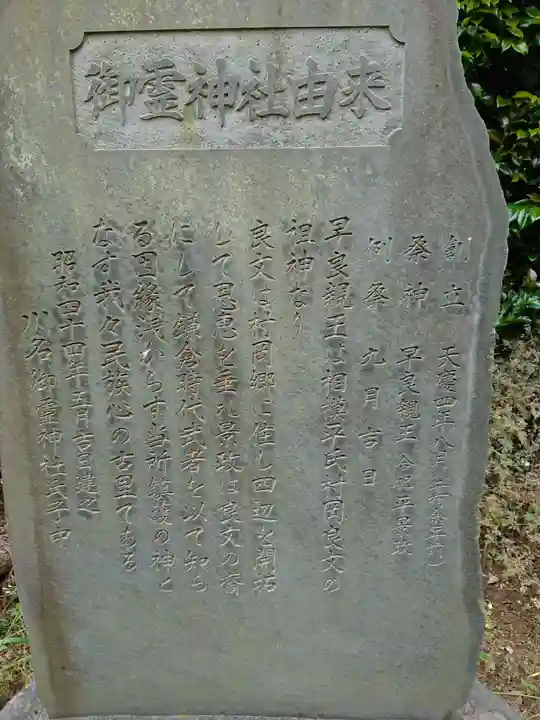 御霊神社由来
創立 天慶四年八月(一千有余年前)
祭神 早良親王 合祀平景政
例祭 九月吉日
早良親王は相模平氏村岡良文の
祖神なり
良文は村岡郷に住し四辺を開拓
して恩恵を垂れ景政は良文の裔
にして鎌倉時代武者を以て知ら
る因縁浅からす当所鎮護の神と
なす我々民族心の古里である
昭和四十四年五月吉日建之
川名御霊神社氏子中